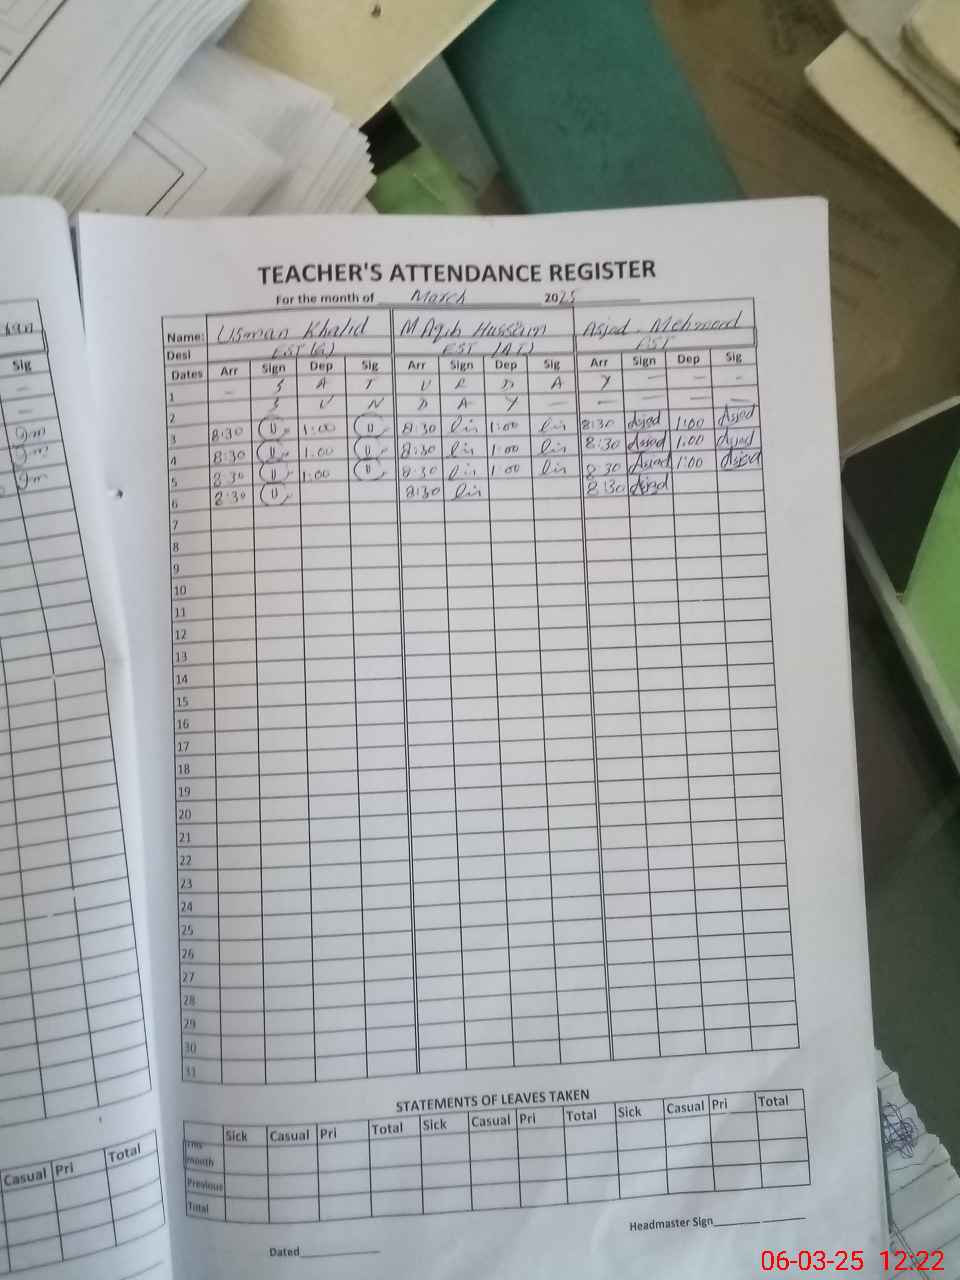 TEACHER'S ATTENDANCE REGISTER
For the month of March 2025
Name: Usman Khalid M Aqib Hussain Asjad Mehmood
Desi EST(G) EST (AT) EST
Dates Arr Sign Dep Sig Arr Sign Dep Sig Arr Sign Dep Sig
1 - S A T U R D A Y - - -
2 S U N D A Y - - - - -
3 8:30 U 1:00 U 8:30 1:00 8:30 Asjad 1:00 Asjad
4 8:30 U 1:00 U 8:30 1:00 8:30 Asjad 1:00 Asjad
5 8:30 U 1:00 U 8:30 1:00 8:30 Asjad 1:00 Asjad
6 8:30 U 8:30 8:30 Asjad
7
8
9
10
11
12
13
14
15
16
17
18
19
20
21
22
23
24
25
26
27
28
29
30
31
STATEMENTS OF LEAVES TAKEN
Sick Casual Pri Total Sick Casual Pri Total Sick Casual Pri Total
This month
Previous
Total
Headmaster Sign
Dated
Sig
Casual Pri Total
06-03-25 12:22